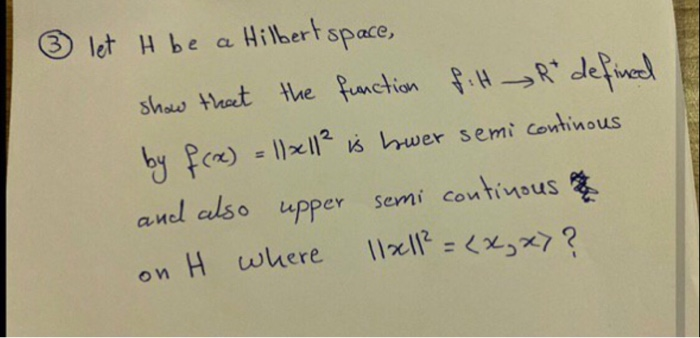 ③ let H be a Hilbert space,
show that the function f: H → R⁺ defined
by f(x) = ||x||² is lower semi continous
and also upper semi continous
on H where ||x||² = <x,x> ?